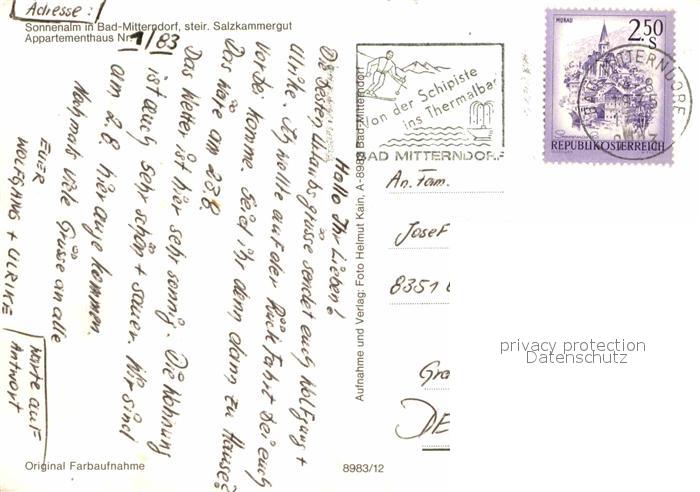 Adresse:
Sonnenalm in Bad-Mitterndorf, steir. Salzkammergut
Appartementhaus Nr. 1/83
Hallo Ihr Lieben!
Die besten Urlaubsgrüsse sendet euch Wolfgang +
Ulrike. Ich wollte auf der Rückfahrt bei euch
vorbei komme. Seid ihr denn dann zu Hause?
Das wäre am 23.8
Das Wetter ist hier sehr sonnig. Die Wohnung
ist auch sehr schön + sauer. Wir sind
am 2.8 hier ange kommen.
Nochmals viele Grüsse an alle
EUER
WOLFGANG + ULRIKE
Warte auf
Antwort
Original Farbaufnahme
8983/12
Aufnahme und Verlag: Foto Helmut Kain, A-8983 Bad-Mitterndorf
Von der Schipiste
ins Thermalbad
BAD MITTERNDORF
MURAU
2.50
S
REPUBLIK ÖSTERREICH
BAD MITTERNDORF
An. Fam.
Josef
8351
Gra
DE
privacy protection
Datenschutz